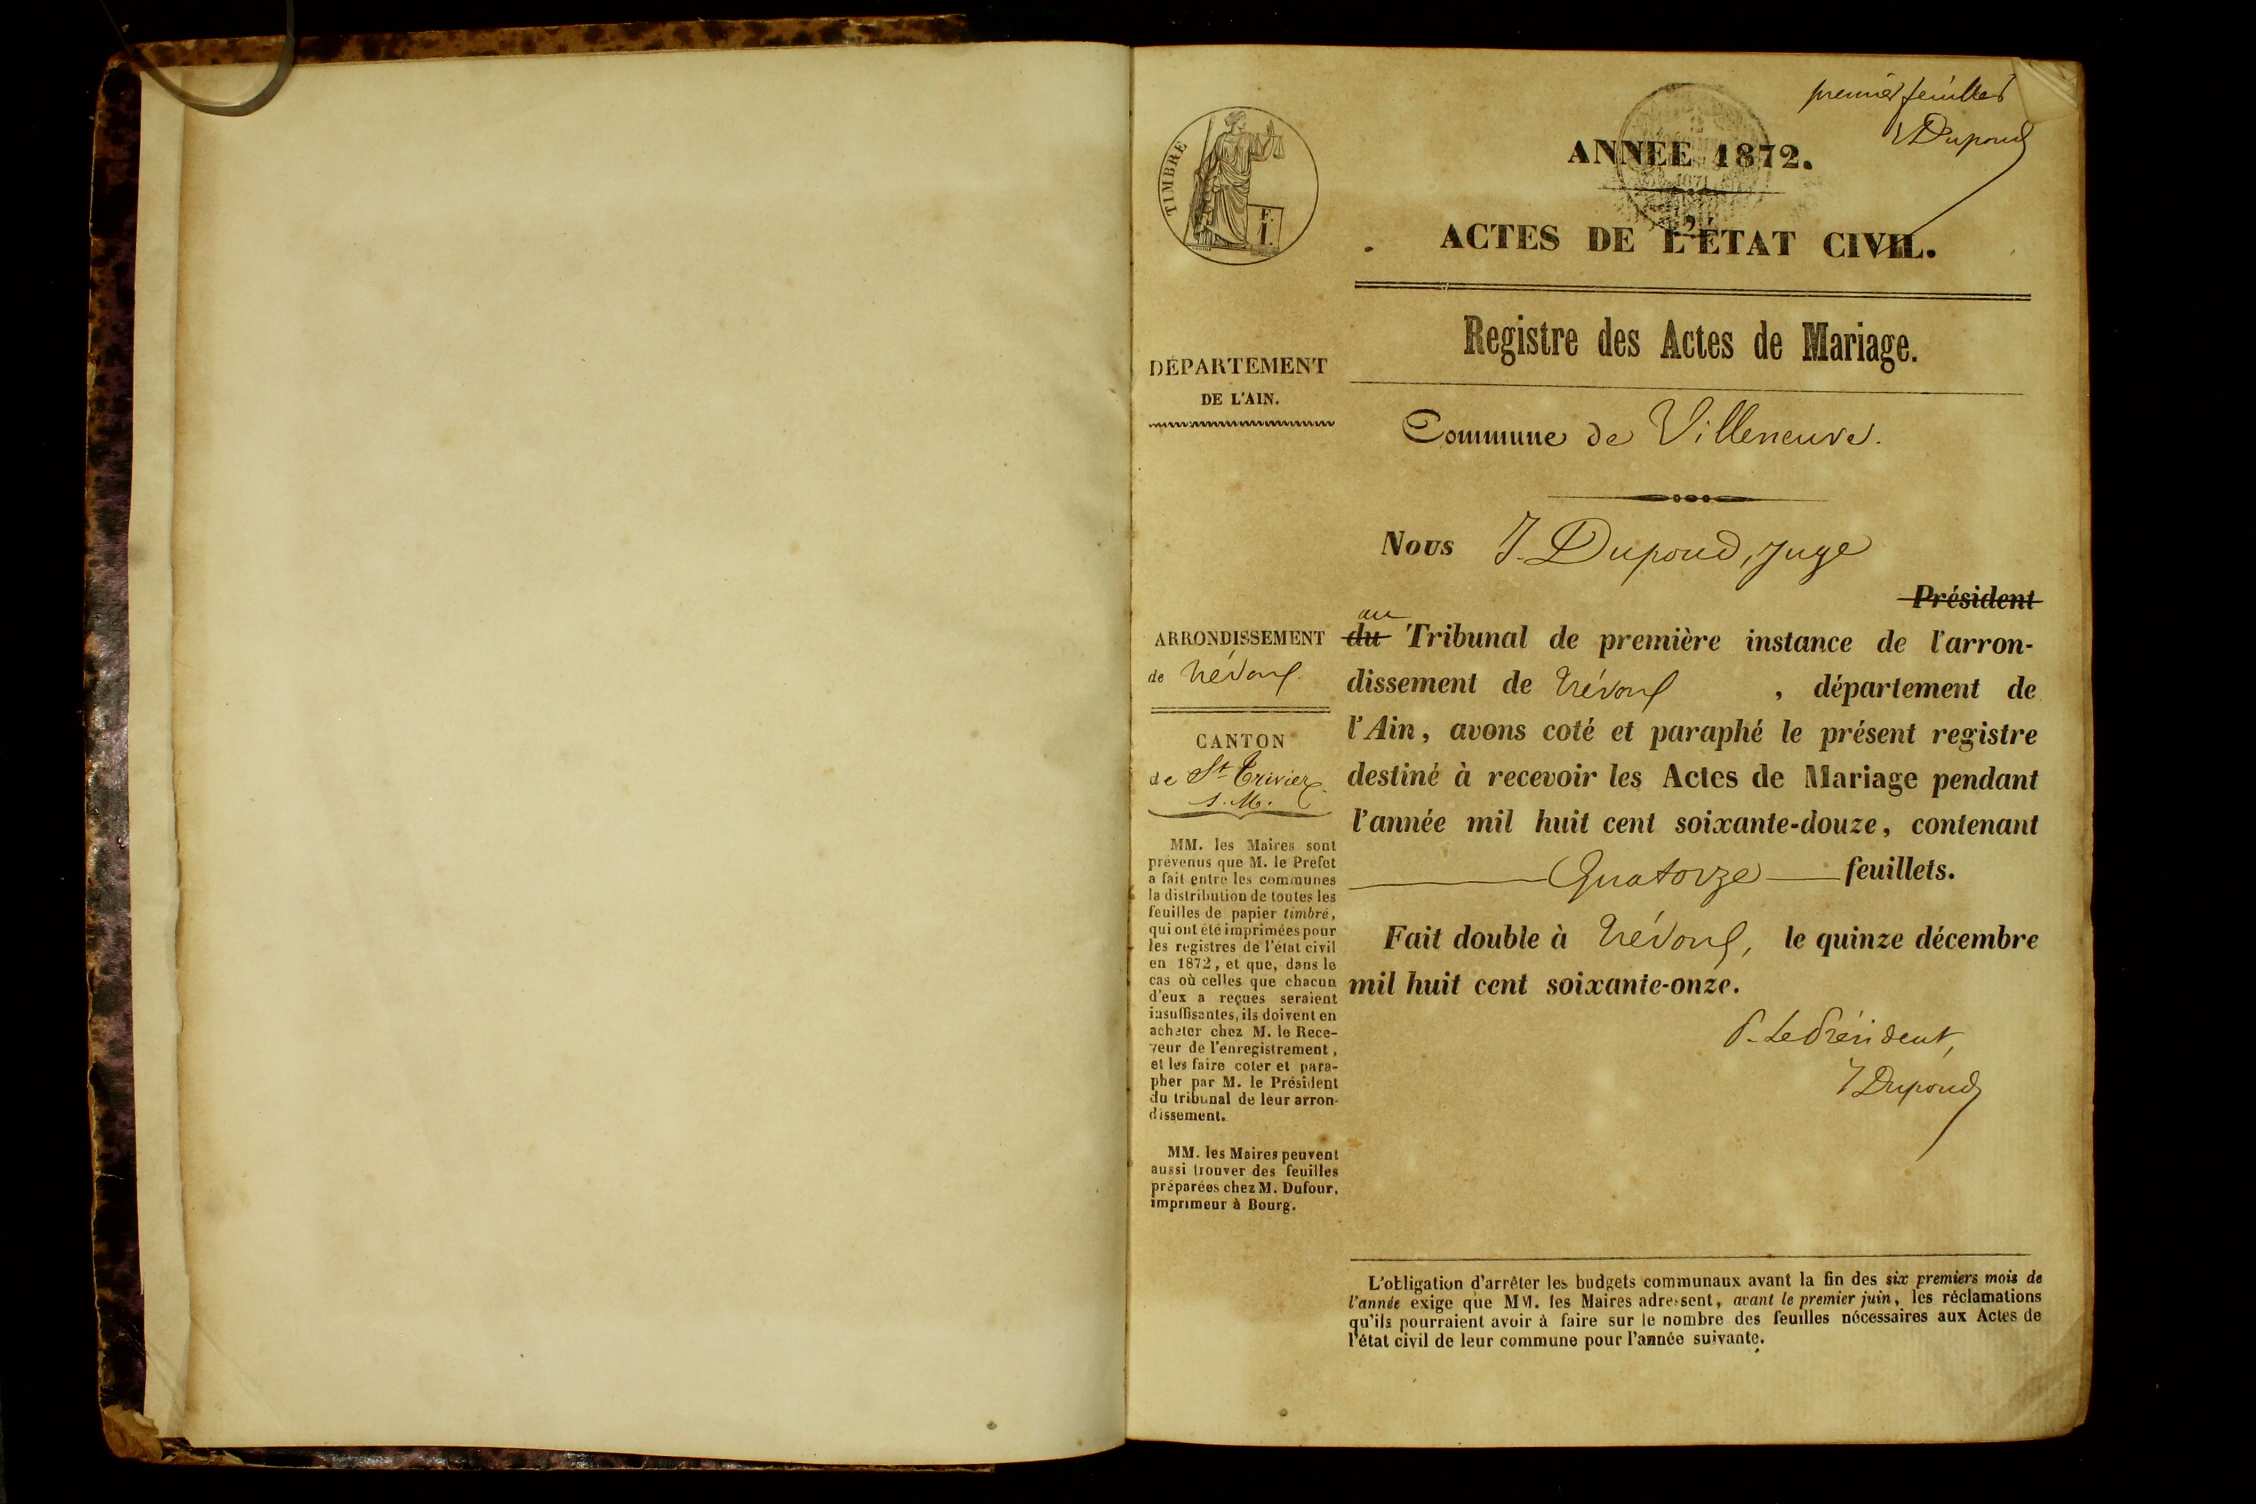 premier feuillet
J Dupoud
TIMBRE
F.
I.
ANNÉE 1872.
ACTES DE L'ÉTAT CIVIL.
Registre des Actes de Mariage.
DÉPARTEMENT
DE L'AIN.
Commune de Villeneuve.
Nous J. Dupoud, juge
Président
au
du Tribunal de première instance de l'arron-
dissement de Trévoux, département de
l'Ain, avons coté et paraphé le présent registre
destiné à recevoir les Actes de Mariage pendant
l'année mil huit cent soixante-douze, contenant
Quatorze feuillets.
Fait double à Trévoux, le quinze décembre
mil huit cent soixante-onze.
P. Le Président,
J Dupoud
ARRONDISSEMENT
de Trévoux.
CANTON
de St Trivier
s. M.
MM. les Maires sont
prévenus que M. le Préfet
a fait entre les communes
la distribution de toutes les
feuilles de papier timbré,
qui ont été imprimées pour
les registres de l'état civil
en 1872, et que, dans le
cas où celles que chacun
d'eux a reçues seraient
insuffisantes, ils doivent en
acheter chez M. le Rece-
veur de l'enregistrement,
et les faire coter et para-
pher par M. le Président
du tribunal de leur arron-
dissement.
MM. les Maires peuvent
aussi trouver des feuilles
préparées chez M. Dufour,
imprimeur à Bourg.
L'obligation d'arrêter les budgets communaux avant la fin des six premiers mois de
l'année exige que MM. les Maires adressent, avant le premier juin, les réclamations
qu'ils pourraient avoir à faire sur le nombre des feuilles nécessaires aux Actes de
l'état civil de leur commune pour l'année suivante.